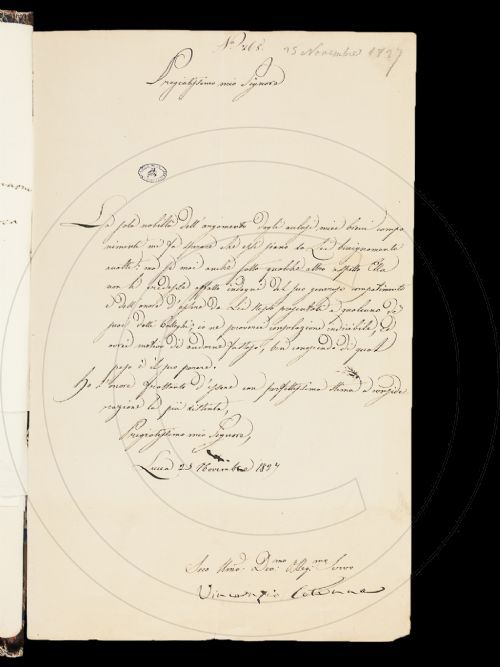 25 Novembre 1827
Pregiatissimo mio Signore
La sola nobiltà dell'argomento degli acclusi miei brevi compo
nimenti mi fa sperare che essi siano da Lei benignamente
accolti: ma se mai anche sotto qualche altro aspetto Ella
non li credesse affatto indegni del suo generoso compatimento
e dell'onore d'essere da Lei stesso presentati a qualcuno de'
suoi dotti Colleghi; io ne proverei consolazione indicibile, ed
avrei motivo di andarne fastoso, ben conoscendo di quant
peso è il suo parere.
Ho l'onore frattanto d'essere con perfettissima stima e conside
razione la più distinta,
Pregiatissimo mio Signore,
Lucca 25 Novembre 1827
Suo Servo
Vincenzio